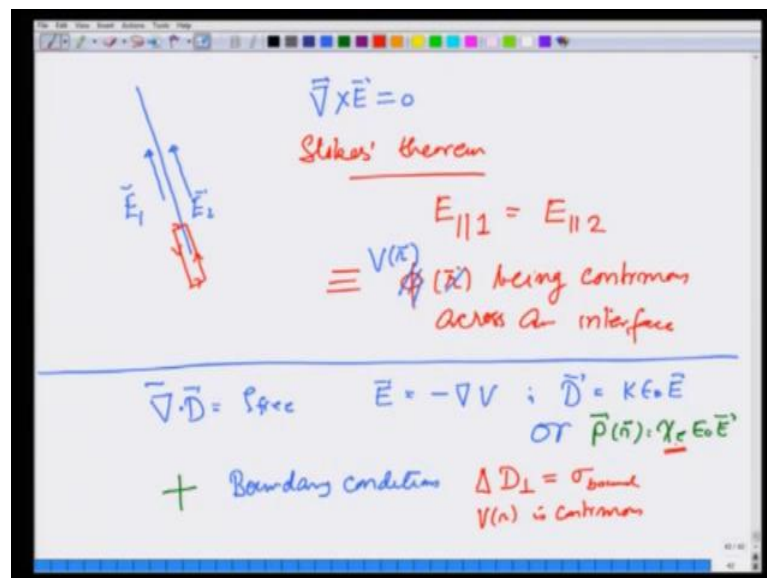 File Edit View Insert Actions Tools Help
∇⃗ × E⃗ = 0
Stokes' theorem
E⃗₁ E⃗₂
E∥1 = E∥2
≡ V(r⃗) (r⃗) being continuous
across an interface
∇⃗·D⃗ = ρfree E⃗ = -∇V ; D⃗ = Kε₀E⃗
or P⃗(r⃗) = χe ε₀E⃗
+ Boundary conditions ΔD⊥ = σbound
V(r) is continuous